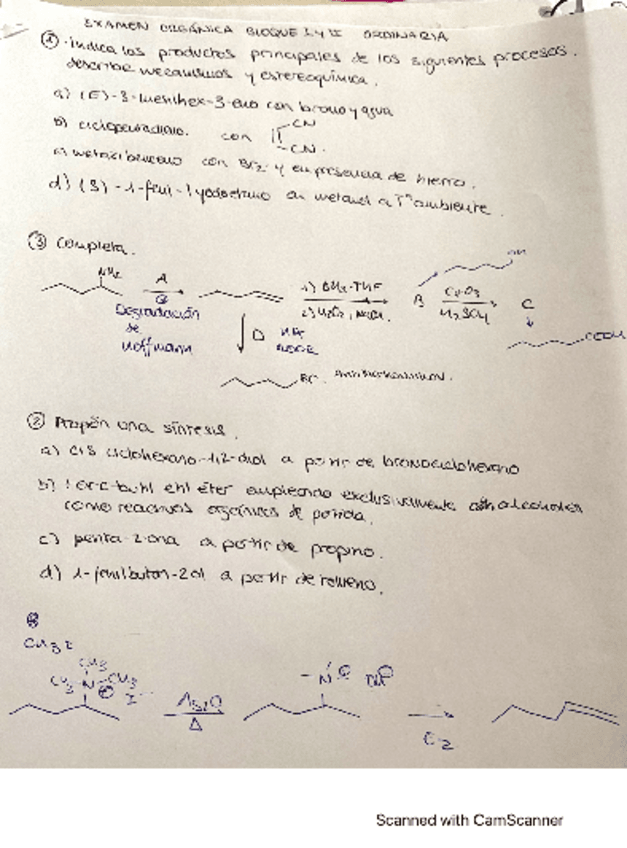 EXAMEN ORGÁNICA BLOQUE I y II ORDINARIA
① Indica los productos principales de los siguientes procesos.
describe mecanismos y estereoquímica.
a) (E)-3-metilhex-3-eno con bromo y agua
b) ciclopentadieno con CN
CN.
c) metoxibenceno con Br2 y en presencia de hierro.
d) (S)-1-fenil-1-yodoetano en metanol a Tª ambiente.
③ Completa.
NH2 A 1) BH3-THF B CrO3 C
2) H2O2, NaOH. H2SO4
OH
Degradación
de
Hoffmann
D HBr
ROOR
COOH
Br. Antimarkovnikov.
② Propón una síntesis.
a) cis ciclohexano-1,2-diol a partir de bromociclohexano
b) terc-butil etil éter empleando exclusivamente alcoholes
como reactivos orgánicos de partida.
c) penta-2-ona a partir de propino.
d) 1-fenilbutan-2-ol a partir de tolueno.
CH3I
CH3
CH3 N CH3
I
Ag2O
Δ
N OH
E2
Scanned with CamScanner